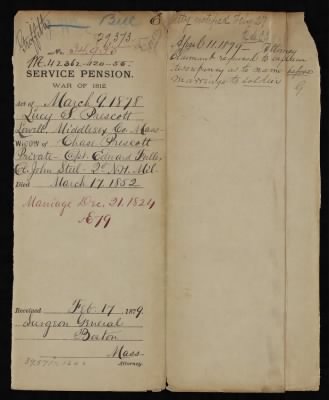 Bill
29,373
SERVICE PENSION.
WAR OF 1812.
Act of March 9, 1878
Lucy S. Prescott
Lowell, Middlesex Co. Mass
Widow of Chase Prescott
Private - Capt. Edward Fuller
Col. John Steel - 2d N.H. Mil.
Died March 17, 1852
Marriage Dec. 21, 1824
Æ 79
Received Feb. 17, 1879.
Surgeon General
Boston
Mass-
Attorney.
April 11, 1879- Attorney
Claimant requested to explain
discrepancy as to name before
marriage to soldier